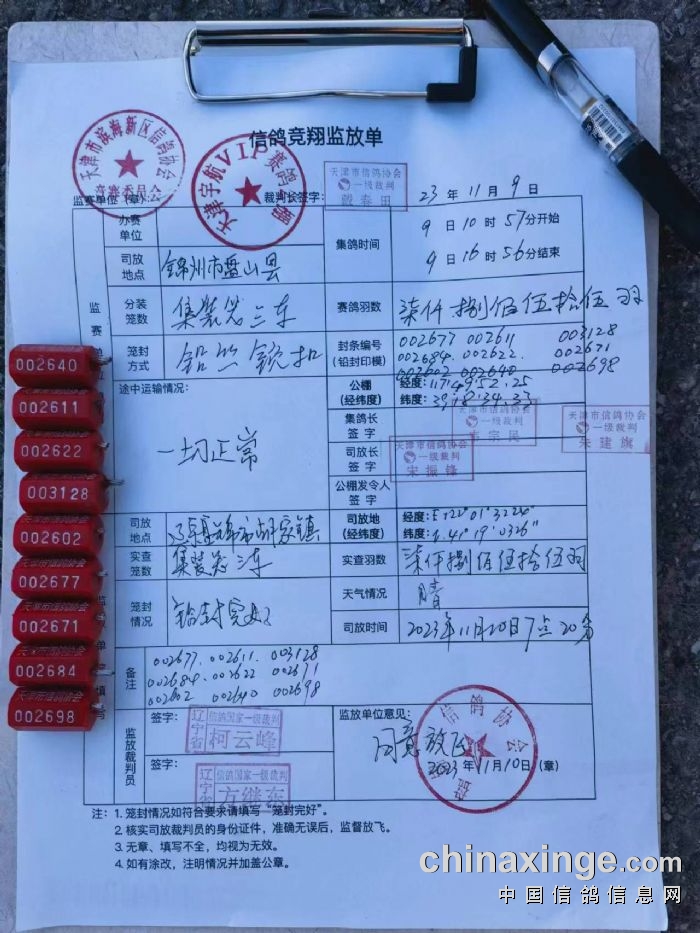 信鸽竞翔监放单
天津市滨海新区信鸽协会
竞赛委员会
天津宇航VIP赛鸽
监赛单位（章）：
裁判长签字：
天津市信鸽协会
一级裁判
戴春田
23年11月9日
监赛
办赛单位
集鸽时间
9日10时57分开始
9日16时56分结束
司放地点
锦州市盘山县
分装笼数
集装笼三车
赛鸽羽数
柒仟捌佰伍拾伍羽
笼封方式
铅丝锁扣
封条编号（铅封印模）
002677 002611 003128
002684 002622 002671
002602 002640 002698
途中运输情况：
一切正常
公棚（经纬度）
经度：117.49.52.25
纬度：39.18.34.33
集鸽长签字
天津市信鸽协会
一级裁判
天津市信鸽协会
一级裁判
朱建旗
司放长签字
天津市信鸽协会
一级裁判
宋振锋
公棚发令人签字
司放地点
胡家镇
司放地（经纬度）
经度：E122°01'3224"
纬度：41°19'0326"
实查笼数
集装笼三车
实查羽数
柒仟捌佰伍拾伍羽
笼封情况
铅封完好
天气情况
晴
司放时间
2023年11月10日7点20分
备注
002677. 002611. 003128
002684. 002622 002671
002602 002640 002698
监放裁判员
签字：
辽宁省
信鸽国家一级裁判
柯云峰
签字：
辽宁省
信鸽国家一级裁判
方继东
监放单位意见：
同意放飞
信鸽协会
2023年11月10日（章）
注：1. 笼封情况如符合要求请填写“笼封完好”。
2. 核实司放裁判员的身份证件，准确无误后，监督放飞。
3. 无章、填写不全，均视为无效。
4. 如有涂改，注明情况并加盖公章。
002640
002611
002622
003128
002602
002677
002671
002684
002698
chinaxinge.com
中国信鸽信息网